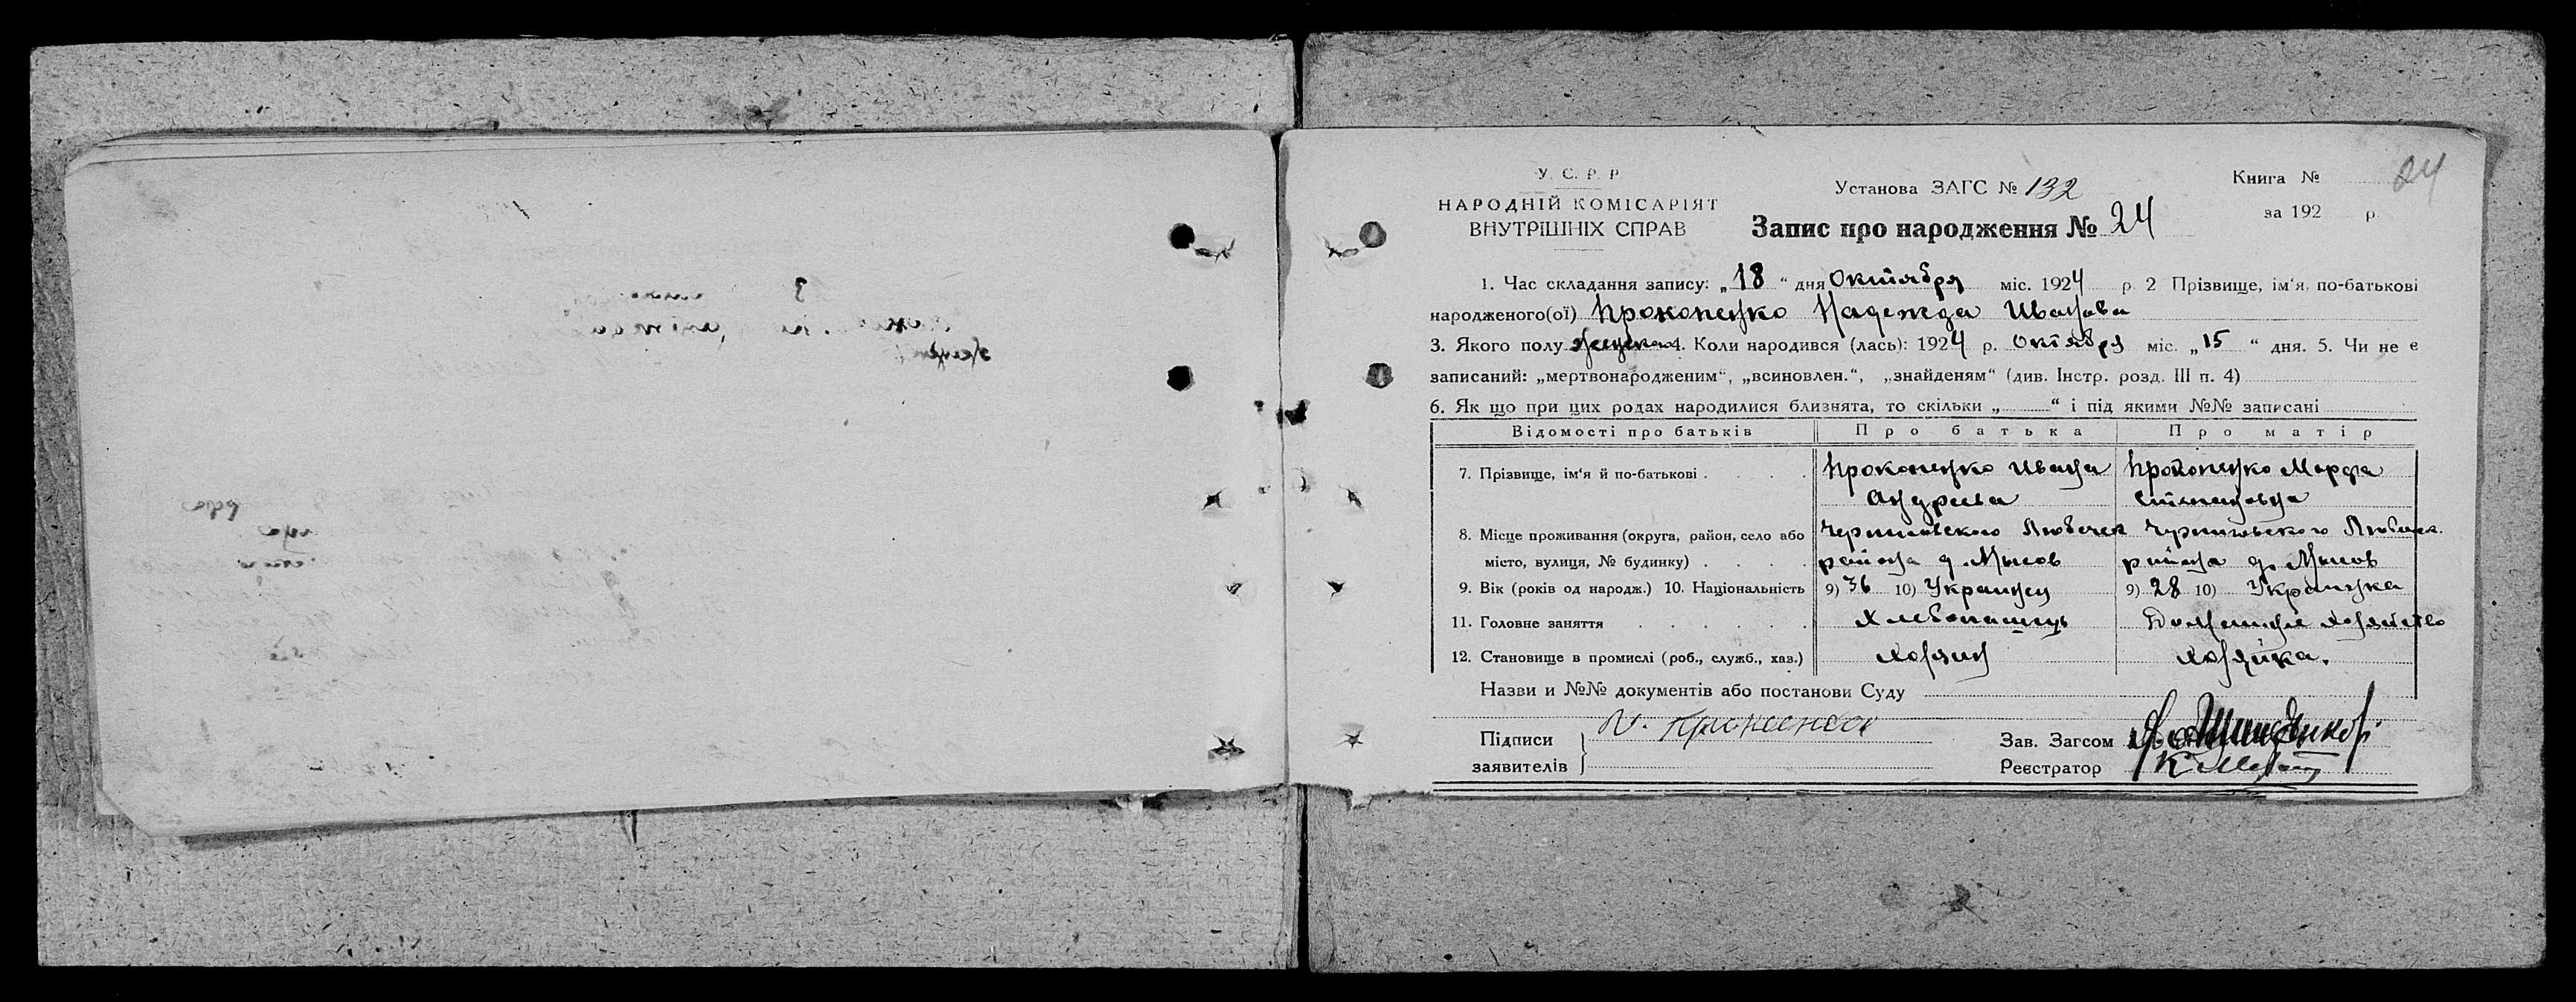 24
У. С. Р. Р.
НАРОДНІЙ КОМІСАРІЯТ
ВНУТРІШНІХ СПРАВ
Установа ЗАГС № 132
Запис про народження № 24
Книга №
за 192 р.
1. Час складання запису: „18“ дня Октября міс. 1924 р. 2 Прізвище, ім‘я, по-батькові
народженого(ої) Прокопенко Надежда Иванова
3. Якого полу женского 4. Коли народився (лась): 1924 р. Октября міс. „15“ дня. 5. Чи не є
записаний: „мертвонародженим“, „всиновлен.“, „знайденям“ (див. Інстр. розд. III п. 4)
6. Як що при цих родах народилися близнята, то скільки „ “ і під якими №№ записані
Відомості про батьків Про батька Про матір
7. Прізвище, ім‘я й по-батькові . . . . Прокопенко Ивана Прокопенко Марфа
Андреева Степановна
8. Місце проживання (округа, район, село або Черниговского Любечск Черниговского Любечск.
місто, вулиця, № будинку) . . . . района д. Мысов района д. Мысов
9. Вік (років од народж.) 10. Національність 9) 36 10) Украинец 9) 28 10) Украинка
11. Головне заняття . . . . . . Хлебопашец Домашнее хозяйство
12. Становище в промислі (роб., служб., хаз.) Хозяин Хозяйка.
Назви и №№ документів або постанови Суду
Підписи
заявителів
Зав. Загсом
Реєстратор